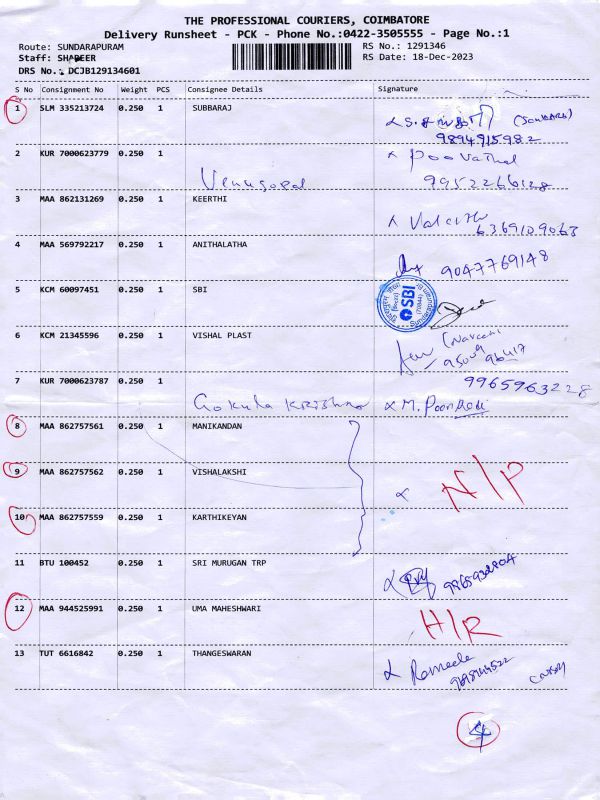 THE PROFESSIONAL COURIERS, COIMBATORE
Delivery Runsheet - PCK - Phone No.:0422-3505555 - Page No.:1
Route: SUNDARAPURAM RS No.: 1291346
Staff: SHABEER RS Date: 18-Dec-2023
DRS No.: DCJB129134601
S No Consignment No Weight PCS Consignee Details Signature
1 SLM 335213724 0.250 1 SUBBARAJ
9894915982
2 KUR 7000623779 0.250 1 Venugopal Poovathal
9952266128
3 MAA 862131269 0.250 1 KEERTHI
6369109063
4 MAA 569792217 0.250 1 ANITHALATHA 9047769148
5 KCM 60097451 0.250 1 SBI SBI
6 KCM 21345596 0.250 1 VISHAL PLAST
7 KUR 7000623787 0.250 1 9965963228
Gokula Krishna
8 MAA 862757561 0.250 1 MANIKANDAN
9 MAA 862757562 0.250 1 VISHALAKSHI N/P
10 MAA 862757559 0.250 1 KARTHIKEYAN
11 BTU 100452 0.250 1 SRI MURUGAN TRP
12 MAA 944525991 0.250 1 UMA MAHESHWARI H/R
13 TUT 6616842 0.250 1 THANGESWARAN